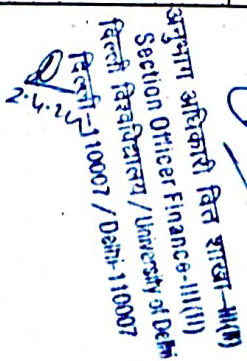 अनुभाग अधिकारी वित्त शाखा-III(II)
Section Officer Finance-III(II)
दिल्ली विश्वविद्यालय / University of Delhi
दिल्ली-110007 / Delhi-110007
2.4.25